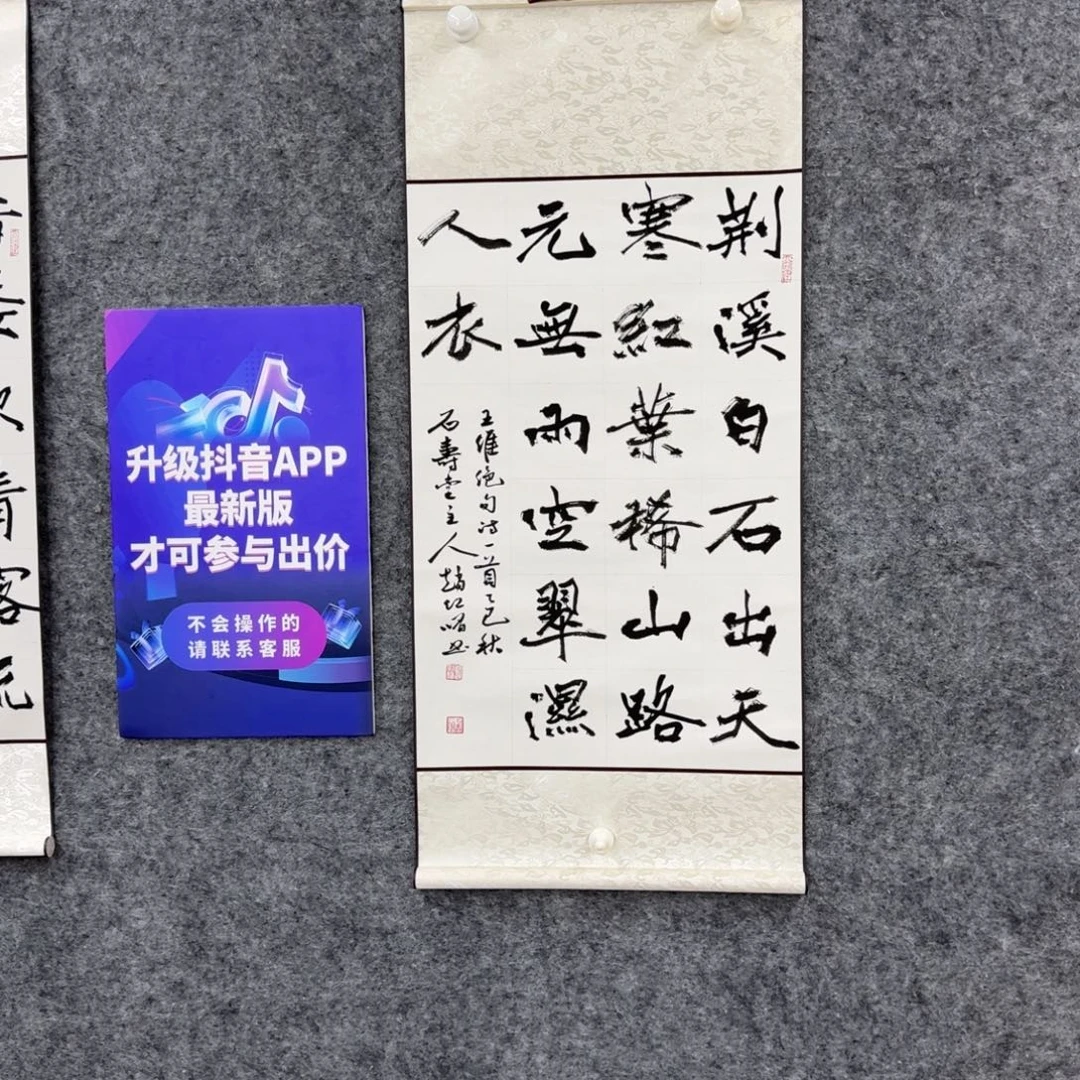 荆溪白石出天
寒紅葉稀山路
元無雨空翠濕
人衣
王維絕句詩一首乙巳秋
石壽堂主人趙江
升级抖音APP
最新版
才可参与出价
不会操作的
请联系客服